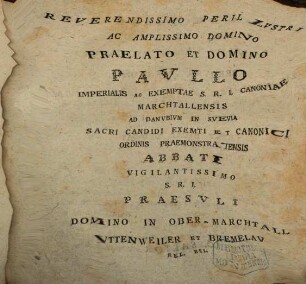 REVERENDISSIMO PERILLUSTRI
AC AMPLISSIMO DOMINO
PRAELATO ET DOMINO
PAVLLO
IMPERIALIS AC EXEMPTAE S. R. I. CANONIAE
MARCHTALLENSIS
AD DANVBIVM IN SVEVIA
SACRI CANDIDI EXEMTI ET CANONICI
ORDINIS PRAEMONSTRATENSIS
ABBATI
VIGILANTISSIMO
S. R. I.
PRAESVLI
DOMINO IN OBER-MARCHTALL
VTTENWEILER ET BREMELAV
REL. REL.